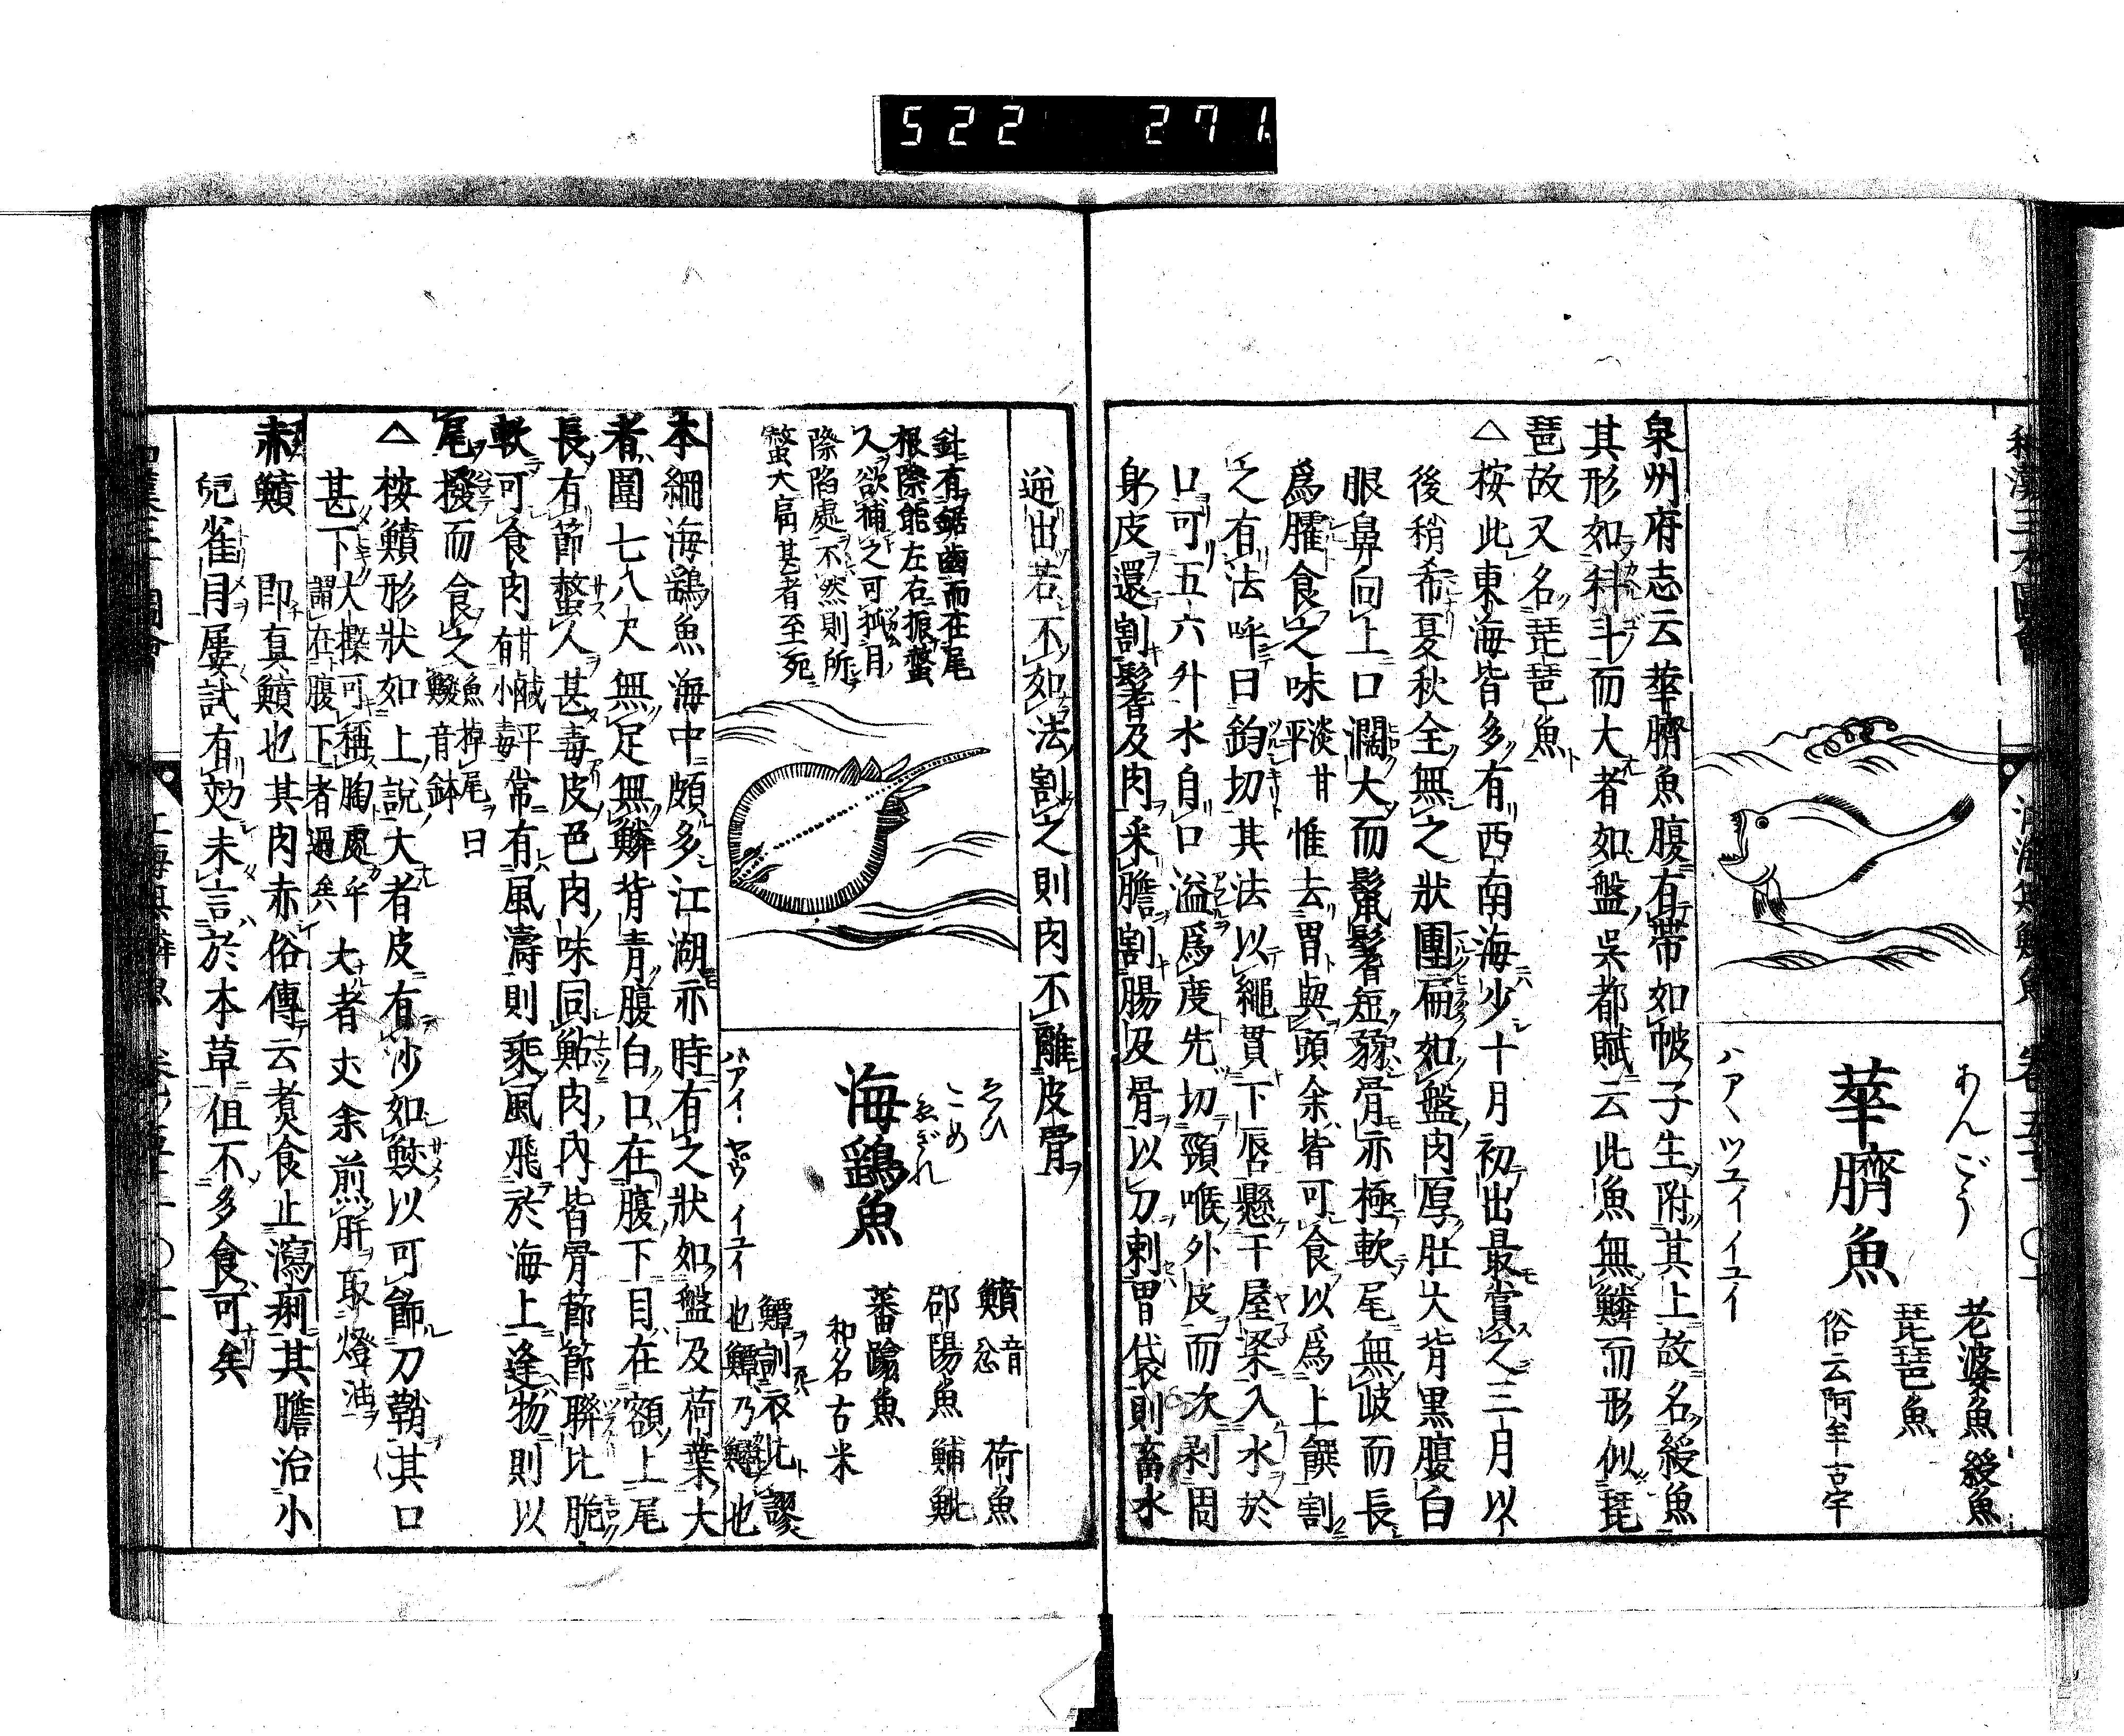 522 271
和漢三才圖會
江海無鱗魚 卷五十一 〇十
あんごう
華臍魚
老婆魚 綬魚
琵琶魚
俗云阿牟古宇
ハアヽ ツユイ イユイ
泉州府志云華臍魚腹有帶如帔子生附其上故名綬魚
其形如科斗而大者如盤吳都賦云此魚無鱗而形似琵
琶故又名琵琶魚
△按此東海皆多有西南海少十月初出最賞之三月以
後稍希夏秋全無之狀團扁如盤肉厚肚大背黒腹白
眼鼻向上口濶大而鬣鬐短弱骨亦極軟尾無岐而長
爲臛食之味淡甘平惟去胃與頭余皆可食以爲上饌割
之有法呼曰鈎切其法以繩貫下唇懸于屋梁入水於
口可五六升水自口溢爲度先切頸喉外皮而次剥周
身皮還割鬐及肉采膽割腸及骨以刀刺胃袋則畜水
迸出若不如法割之則肉不離皮骨
ゑひ
こめ
ゑぎれ
海鷂魚
鱝音忿 荷魚
邵陽魚 鯆魮
蕃蹹魚
和名古米
鱏訓衣比謬
也鱏乃鱘也
ハアイ ヤウ イユイ
針有鋸齒而在尾
根際能左右振螫
人欲捕之可抓目
際陷處不然則所
螫大扁甚者至死
本綱海鷂魚海中頗多江湖亦時有之狀如盤及荷葉大
者圍七八尺無足無鱗背青腹白口在腹下目在額上尾
長有節螫人甚毒皮色肉味同鮎肉內皆骨節節聯比脆
軟可食肉甘鹹平有小毒常有風濤則乘風飛於海上逢物則以
尾撥而食之魚掉尾曰鱍音鉢
△按鱝形狀如上說大者皮有沙如鮫以可飾刀鞘其口
甚下大檪可稱胸處乎謂在腹下者過矣大者丈余煎肝取燈油
赤鱝 卽真鱝也其肉赤俗傳云煑食止瀉痢其膽治小
兒雀目屢試有効未言於本草但不多食可矣